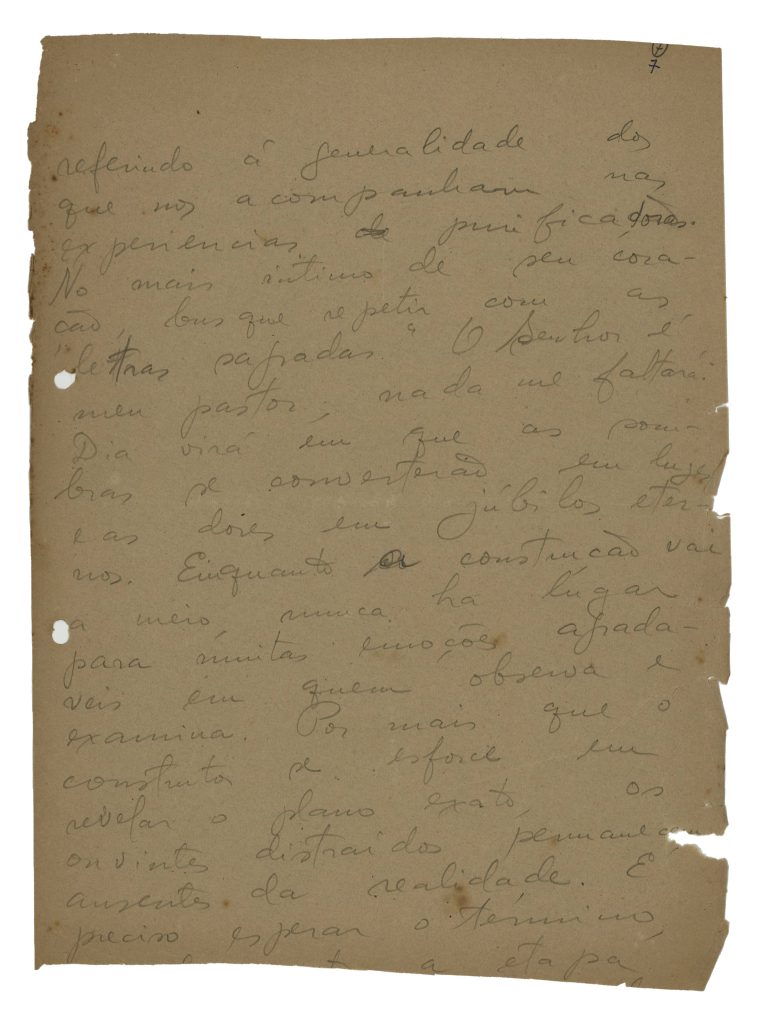 7
7
referindo á generalidade dos
que nos acompanham nas
experiencias de purificadoras.
No mais intimo de seu cora-
ção, busque repetir com as
letras sagradas: "O Senhor é
meu pastor, nada me faltará."
Dia virá em que as som-
bras se converterão em luzes
e as dores em júbilos eter-
nos. Enquanto a construcão vai
a meio, nunca ha lugar
para muitas emoções agrada-
veis em quem observa e
examina. Por mais que o
construtor se esforce em
revelar o plano exato, os
ouvintes distraídos permanecem
ausentes da realidade. É
preciso esperar o término,
a etapa